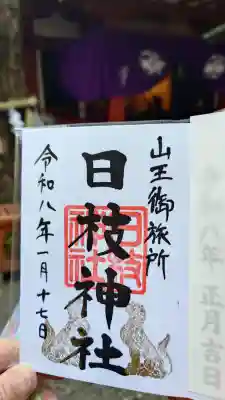 山王御旅所
日枝神社
日枝神社
令和八年一月十七日
正月吉日